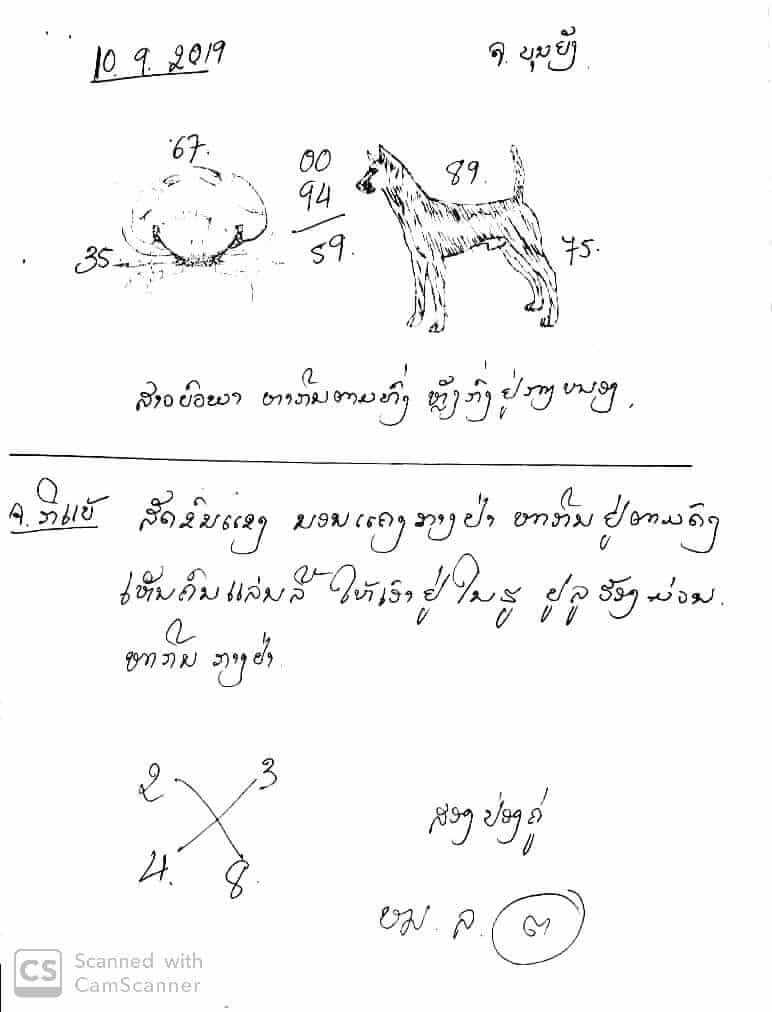 10. 9. 2019
ຈ. ບຸນຍັງ
67.
00
94
59.
89.
35
75.
ສາວຍໍພາ ຫາກິນຕາມທົ່ງ ຫຼັງກົ່ງ ຢູ່ກາງຫນອງ
ຈ. ກີແບ້ ສັດຂົນແຂງ ນອນແຄງກາງປ່າ ຫາກິນ ຢູ່ຕາມດົງ
ເຫັນຄົນແລ່ນລີ້ ໃຫ້ເຈົ້າຢູ່ ໃນຮູ ຢູ່ລູ ຮ້ອງ ມ່ວນ.
ຫາກິນ ກາງປ່າ.
2 3
4. 8.
ສອງ ປ່ອງຄູ່
ຫມ. ລ. ຕ
CS Scanned with
CamScanner